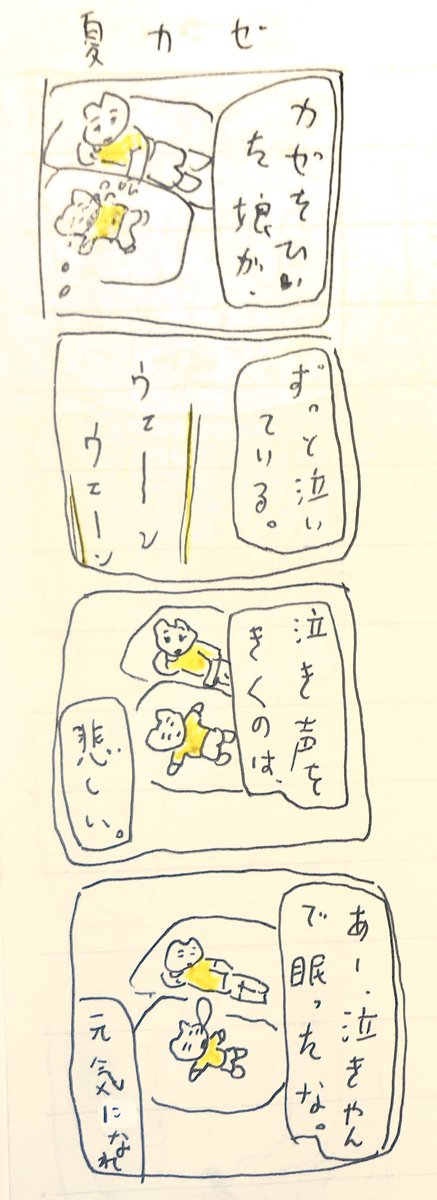 夏カゼ
カゼをひい
た娘が、
ずっと泣い
ている。
ウェーン
ウェーン
泣き声を
きくのは、
悲しい。
あー、泣きやん
で眠ったな。
元気になれ